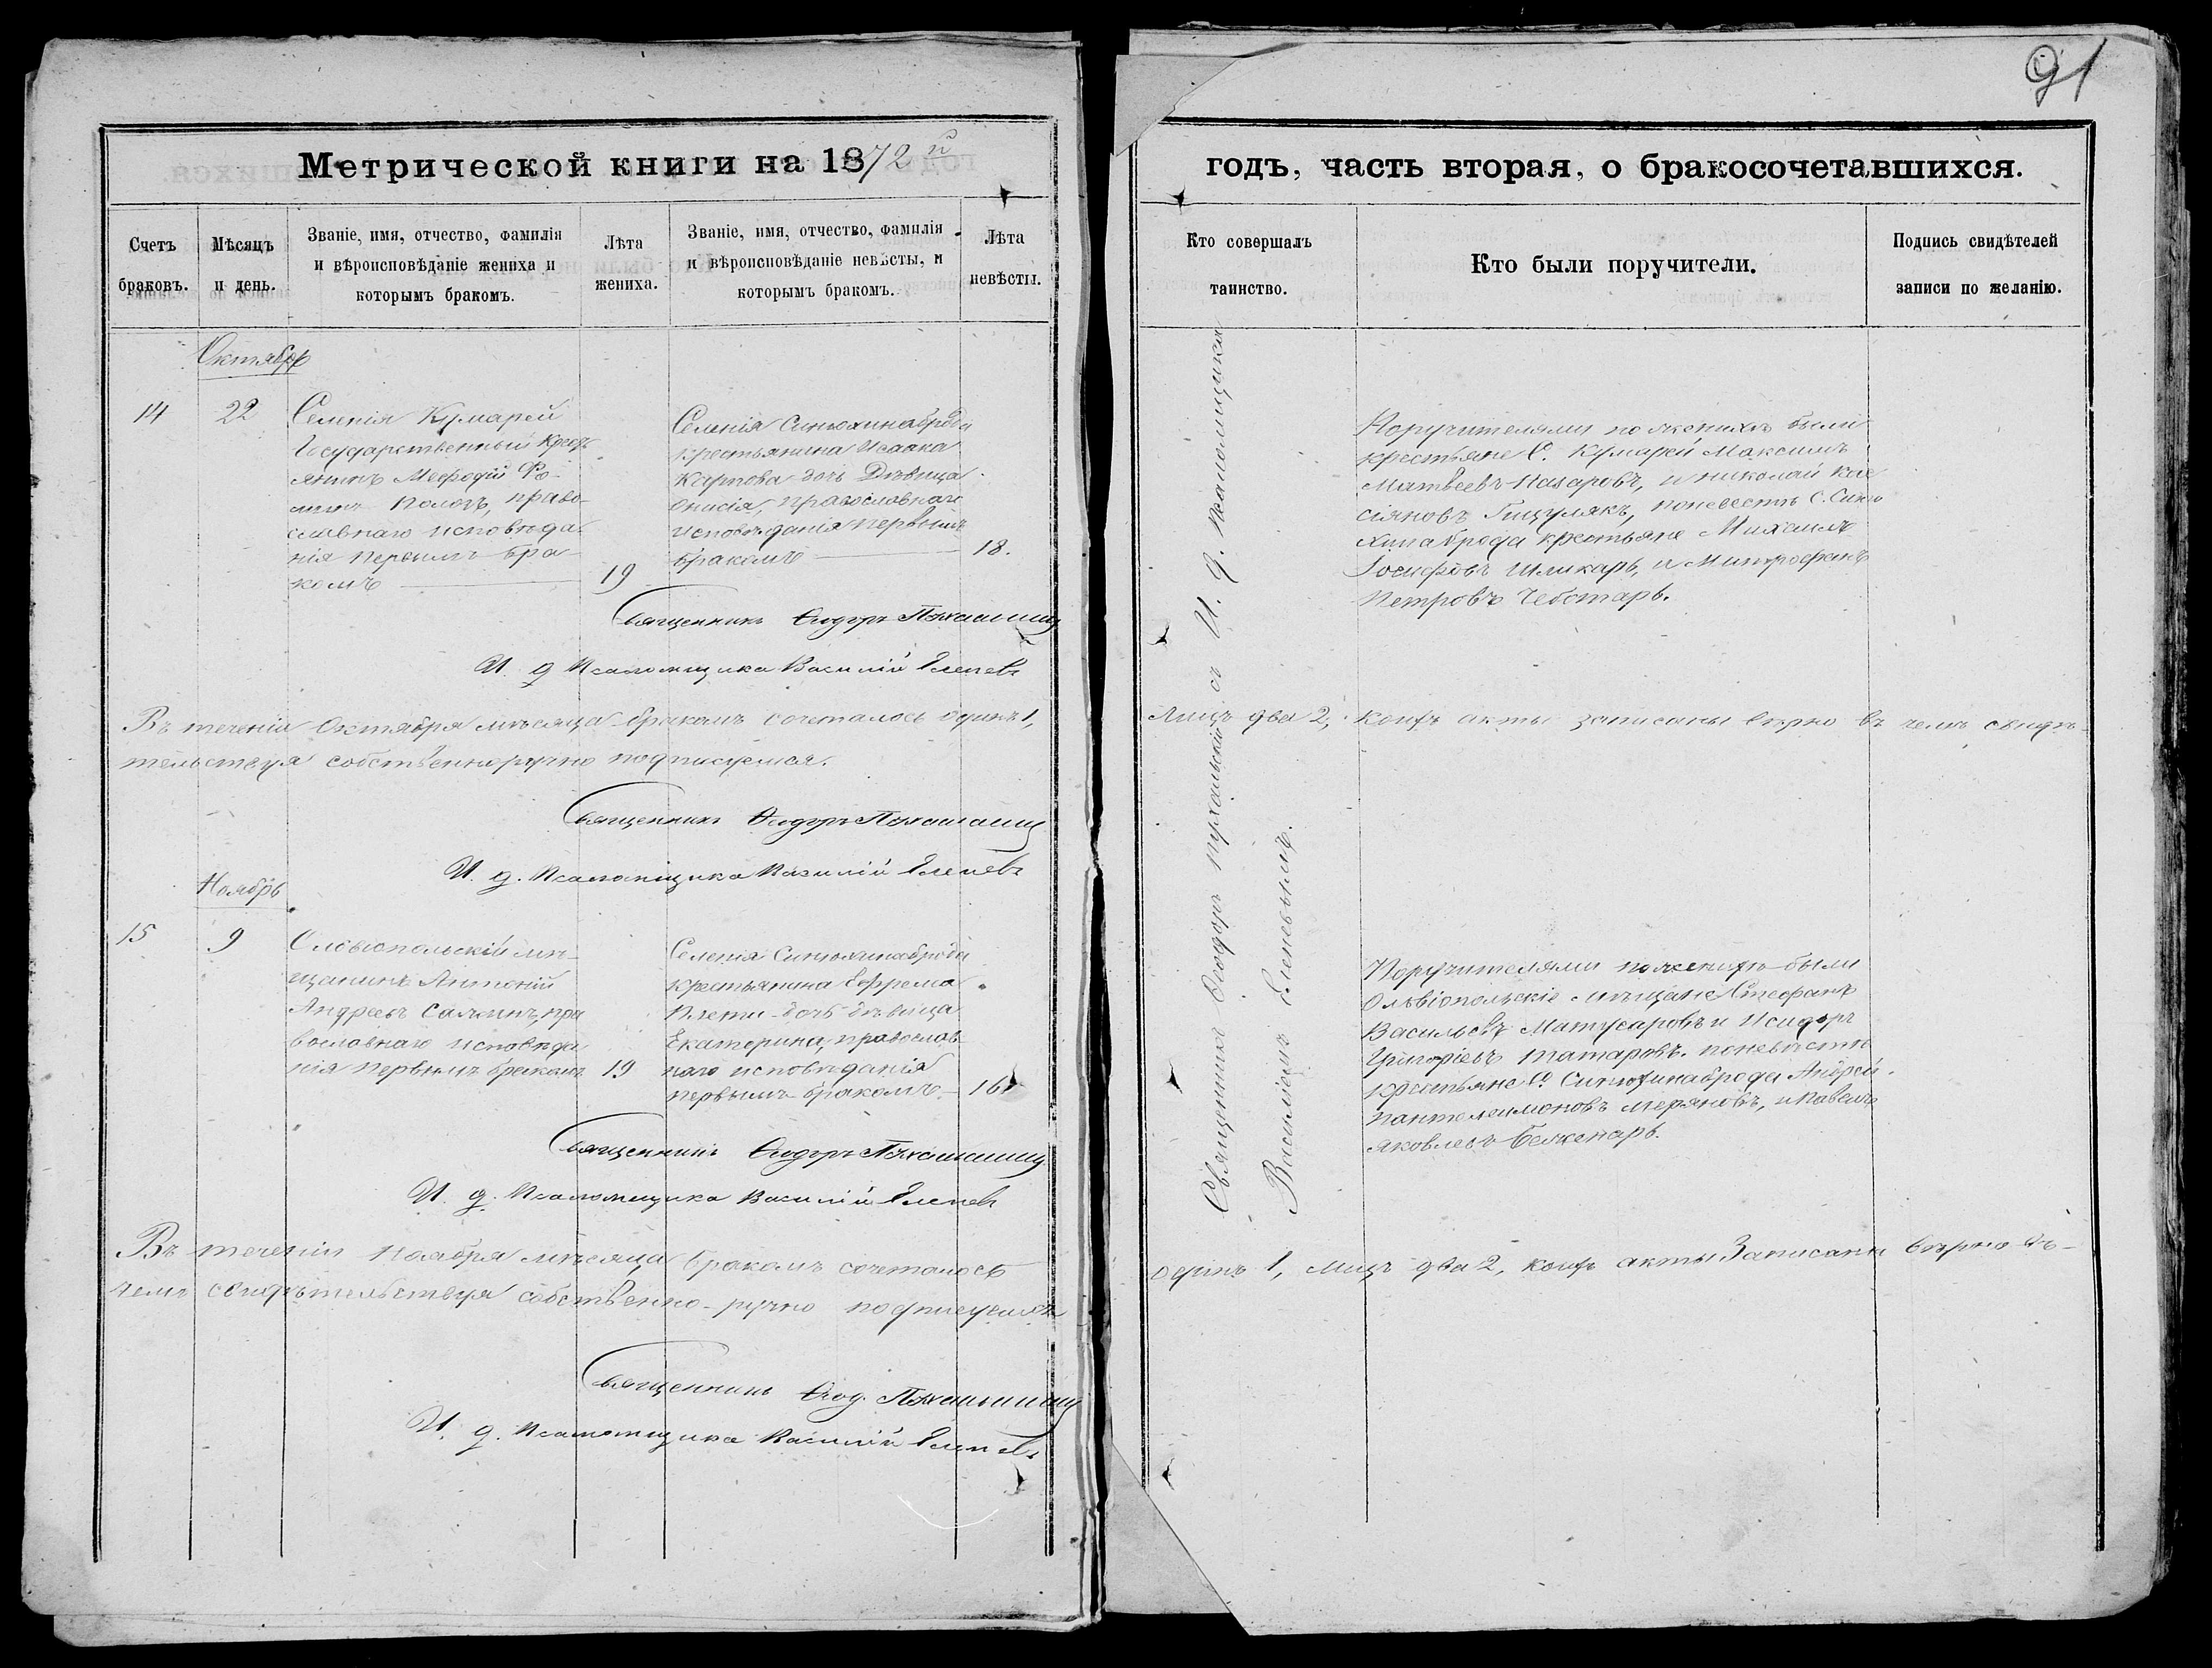 91
Метрической книги на 1872й
годъ, часть вторая, о бракосочетавшихся.
Счетъ браковъ.
Мѣсяцъ и день.
Званіе, имя, отчество, фамилія
и вѣроисповѣданіе жениха и
которымъ бракомъ.
Лѣта
жениха.
Званіе, имя, отчество, фамилія
и вѣроисповѣданіе невѣсты, и
которымъ бракомъ.
Лѣта
невѣсты.
Кто совершалъ
таинство.
Кто были поручители.
Подпись свидѣтелей
записи по желанію.
Октябрь
14
22
Селенія Кумарей
Государственный Крест
янинъ Мефодій Фо-
мин право-
славнаго исповѣда-
нія первымъ бра-
комъ
19
Селенія Синюхинаброда
крестьянина Исаака
Карпова дочь Дѣвица
православнаго
исповѣданія первымъ
бракомъ
18.
Священникъ Ѳеодоръ
И. д. Псаломщика Василій Еленевъ
Поручителями по женихѣ были
крестьяне С. Кумарей Максимъ
Матвѣевъ Назаровъ, и Николай Кас
сіановъ Гицулякъ, поневестѣ С. Синю
хинаброда крестьяне Михаилъ
Іосифовъ Шликарь, и Митрофанъ
Петровъ Чеботарь.
Въ теченіи Октября мѣсяца бракомъ сочеталось одинъ 1,
Лицъ два 2, коихъ акты записаны вѣрно въ чемъ свидѣ-
тельствуя собственноручно подписуемся.
Священникъ Ѳеодоръ
И. д. Псаломщика Василій Еленевъ
Священникъ Ѳеодоръ съ И. д. Псаломщика
Василіемъ Еленевымъ.
Ноябрь
15
9
Олвіопольскій мѣ-
щанинъ Антоній
Андреевъ пра
вославнаго исповѣда
нія первымъ бракомъ
19
Селенія Синюхинаброда
крестьянина Ефрема
Плети дочь дѣвица
Екатерина, православ
наго исповѣданія
первымъ бракомъ.
16
Священникъ Ѳеодоръ
И. д. Псаломщика Василій Еленевъ
Поручителями по женихѣ были
Ольвіопольскіе мѣщане Стефанъ
Васильевъ Матусаровъ и Исидоръ
Григоріевъ Татаровъ. поневѣстѣ
крестьяне С. Синюхинаброда Андрей
Пантелеимоновъ Меряновъ, и Павелъ
Яковлевъ
Въ теченіи Ноября мѣсяца бракомъ сочеталось
одинъ 1, лицъ два 2, коихъ акты Записаны вѣрно въ
чемъ свидѣтельствуя собственно-ручно подписуемся
Священникъ Ѳеод.
И. д. Псаломщика Василій Еленевъ